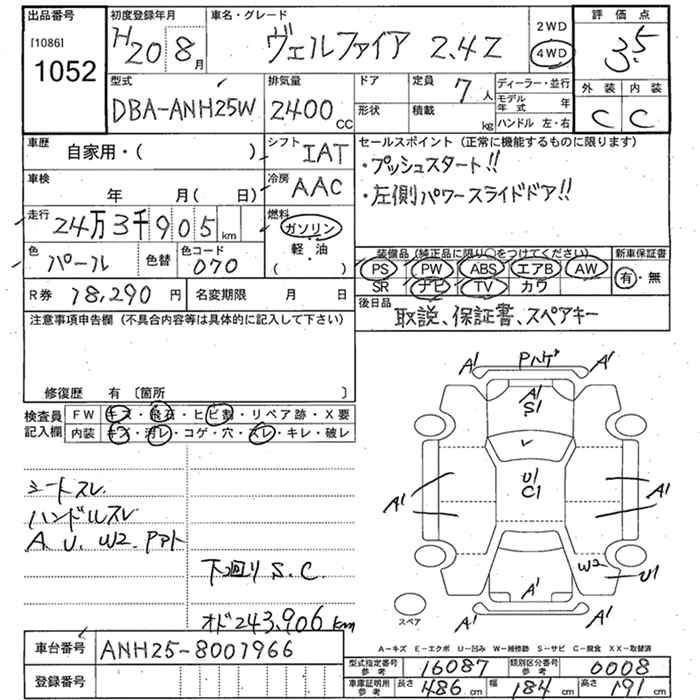 出品番号
[1086]
1052
初度登録年月
H20 8月
車名・グレード
ヴェルファイア 2.4Z
2WD
4WD
評価点
3.5
外装 内装
C C
型式
DBA-ANH25W
排気量
2400CC
ドア
形状
定員
7人
積載
kg
ディーラー・並行
モデル年式 年
ハンドル 左・右
車歴
自家用・( )
シフト
IAT
車検
年 月( 日)
冷房
AAC
走行
24万3千905km
燃料
ガソリン
軽・油
( )
色
パール
色替
色コード
070
R券 18,290円
名変期限 月 日
セールスポイント (正常に機能するものに限ります)
・プッシュスタート!!
・左側パワースライドドア!!
装備品 (純正品に限り○をつけてください)
PS PW ABS エアB AW
SR ナビ TV カワ
新車保証書
有・無
後日品
取説、保証書、スペアキー
注意事項申告欄 (不具合内容等は具体的に記入して下さい)
修復歴 有 〔箇所 〕
検査員記入欄
FW キズ・飛石・ヒビ割・リペア跡・X要
内装 キズ・汚レ・コゲ・穴・スレ・キレ・破レ
シートスレ
ハンドルスレ
A. U. W2. Pアト
下廻り S.C.
オド243,906km
A1 Pハゲ A1
A1
S1
U1
C1
A1
A1
W2
U1
A1 A1 A1
スペア
A-キズ E-エクボ U-凹み W-補修跡 S-サビ C-腐食 XX-取替済
車台番号
ANH25-8001966
登録番号
型式指定番号 参考 16087
類別区分番号 参考 0008
車庫証明用 参考 長さ 486cm 幅 184cm 高さ 191cm